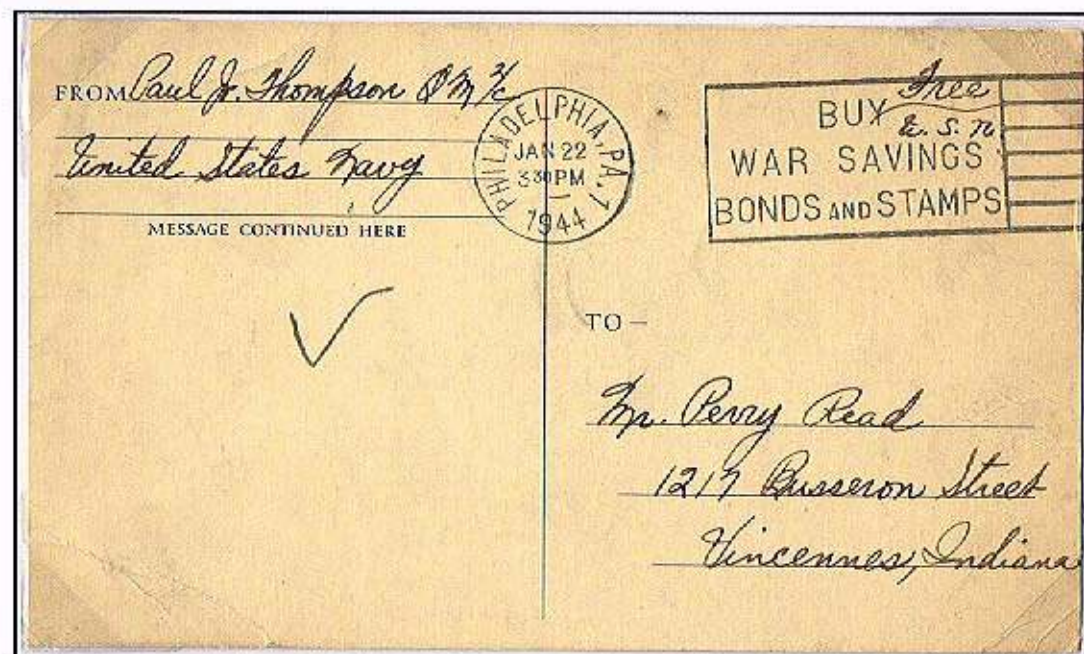 FROM Paul Jr. Thompson QM 2/c
United States Navy
MESSAGE CONTINUED HERE
PHILADELPHIA, PA. 1
JAN 22
3 30 PM
1944
Free
U. S. N.
BUY
WAR SAVINGS
BONDS AND STAMPS
TO –
Mr. Perry Read
1217 Busseron Street
Vincennes, Indiana